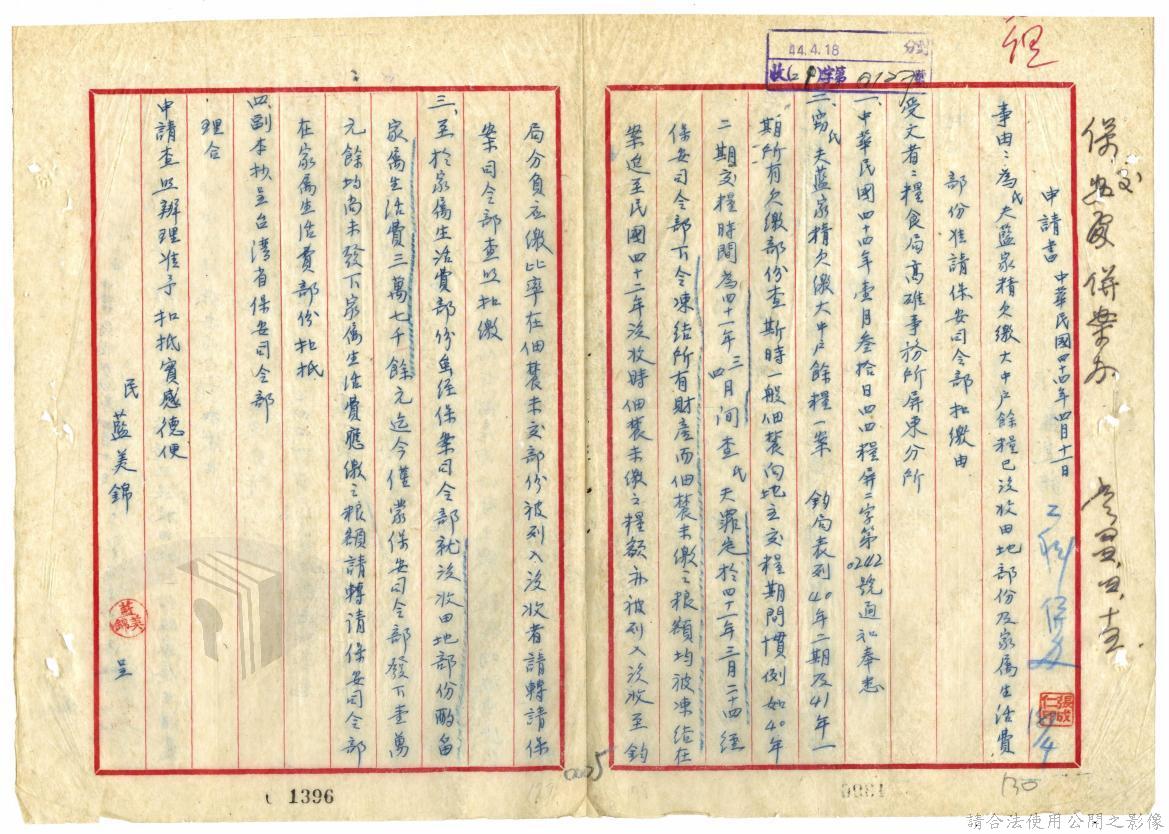 44.4.18
申請書 中華民國四十四年四月十一日
事由:為氏夫藍家精欠繳大中戶餘糧已沒收田地部份及家屬生活費
部份准請保安司令部扣繳由
受文者:糧食局高雄事務所屏東分所
一、中華民國四十四年壹月叁拾日四四糧屏二字第0242號通知奉悉
二、竊氏夫藍家精欠繳大中戶餘糧一案 鈞局表列40年二期及41年一
期所有欠繳部份查斯時一般佃農向地主交糧期間慣例如40年
二期交糧時間為四十一年三四月间查氏夫罪先於四十一年三月二十四經
保安司令部下令凍結所有財產而佃農未繳之粮額均被凍结在
案迄至民國四十二年沒收時佃農未繳之糧额亦被列入沒收至鈞
局分負应繳比率在佃農未交部份被列入沒收者請轉請保
案司令部查照扣繳
三、至於家屬生活費部份虽經保案司令部就沒收田地部份酌留
家屬生活費三萬七千餘元迄今僅蒙保安司令部發下壹萬
元餘均尚未發下家屬生活費應繳之粮額請轉请保安司令部
在家屬生活費部份扣抵
四、副本抄呈台湾省保安司令部
理合
申請查照辦理准予扣抵實感德便
民 藍美錦 呈
藍美錦
張成仁
1396
130
請合法使用公開之影像